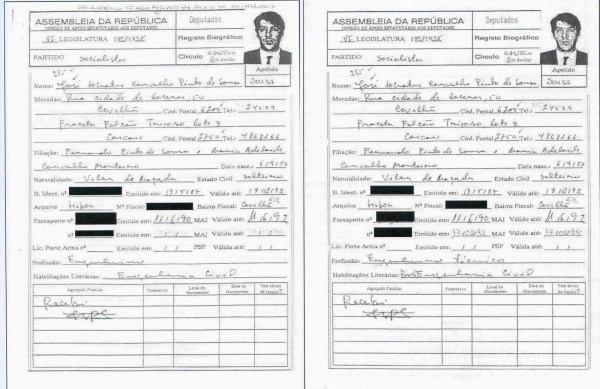 ASSEMBLEIA DA REPÚBLICA
DIVISÃO DE APOIO ESTATUTÁRIO AOS DEPUTADOS
Deputados
VI LEGISLATURA
Registo Biográfico
PARTIDO socialista
Círculo CASTELO BRANCO
Apelido
Sousa
Nome: José Socrates Carvalho Pinto de Sousa
Moradas: Rua cidade de
Covilhã Cód. Postal 6200 Tel.:
Praceta Falcão lote 3
Cascais Cód. Postal 2750 Tel.:
Filiação: Fernando Pinto de Sousa e Maria Adelaide
Carvalho Monteiro Data nasc.: 6/9/57
Naturalidade: Vilar de Maçada Estado Civil solteiro
B. Ident. nº Emitido em: Válido até:
Arquivo Lisboa Nº Fiscal: Bairro Fiscal: Covilhã
Passaporte nº Emitido em: 11/6/90 MAI Válido até: 11/6/92
nº Emitido em: MAI Válido até:
Lic. Porte Arma nº Emitido em: / / PSP Válida até: / /
Profissão: Engenheiro
Habilitações Literárias: Engenharia Civil
Agregado Familiar
Parentesco
Local de Nascimento
Data de Nascimento
Recebi
ASSEMBLEIA DA REPÚBLICA
DIVISÃO DE APOIO ESTATUTÁRIO AOS DEPUTADOS
Deputados
VI LEGISLATURA
Registo Biográfico
PARTIDO socialista
Círculo CASTELO BRANCO
Apelido
Sousa
Nome: José Socrates Carvalho Pinto de Sousa
Moradas: Rua cidade de
Covilhã Cód. Postal 6200 Tel.:
Praceta Falcão lote 3
Cascais Cód. Postal 2750 Tel.:
Filiação: Fernando Pinto de Sousa e Maria Adelaide
Carvalho Monteiro Data nasc.: 6/9/57
Naturalidade: Vilar de Maçada Estado Civil solteiro
B. Ident. nº Emitido em: Válido até:
Arquivo Lisboa Nº Fiscal: Bairro Fiscal: Covilhã
Passaporte nº Emitido em: 11/6/90 MAI Válido até: 11/6/92
nº Emitido em: MAI Válido até:
Lic. Porte Arma nº Emitido em: / / PSP Válida até: / /
Profissão: Engenheiro Técnico
Habilitações Literárias: Engenharia Civil
Agregado Familiar
Parentesco
Local de Nascimento
Data de Nascimento
Recebi